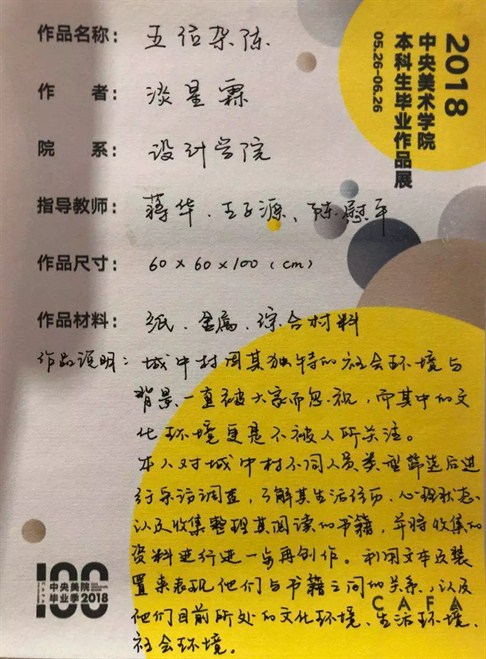 2018
中央美术学院
本科生毕业作品展
05.26-06.26
作品名称：五位杂陈
作 者：淡星霖
院 系：设计学院
指导教师：蒋华、王子源、陈慰平
作品尺寸：60×60×100（cm）
作品材料：纸、金属、综合材料
作品说明：城中村因其独特的社会环境与
背景一直被大家而忽视，而其中的文
化环境更是不被人所关注。
本人对城中村不同人员类型筛选后进
行采访调查，了解其生活经历、心理状态
以及收集整理其阅读的书籍，并将收集的
资料进行进一步再创作。利用文本及装
置来表现他们与书籍之间的关系，以及
他们目前所处的文化环境、生活环境、
社会环境。
100
中央美院
毕业季2018
CAFA